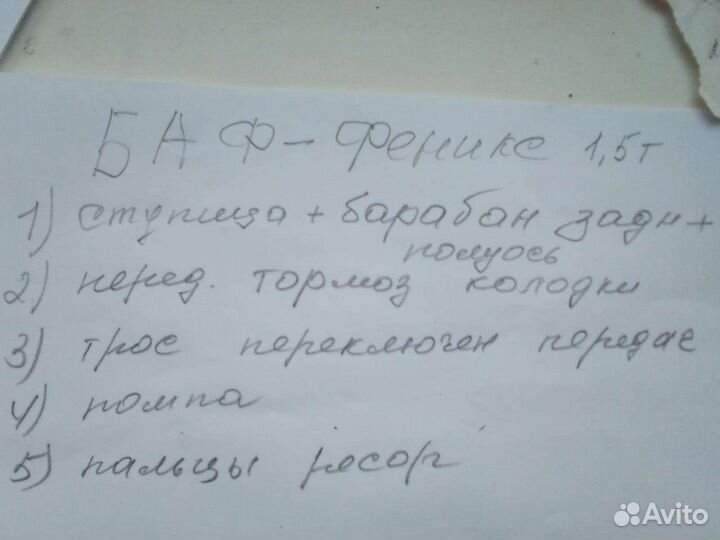 БАФ-Феникс 1,5т
1) ступица + барабан задн +
полуось
2) перед. тормоз колодки
3) трос переключен передас
4) помпа
5) пальцы ресор
Avito